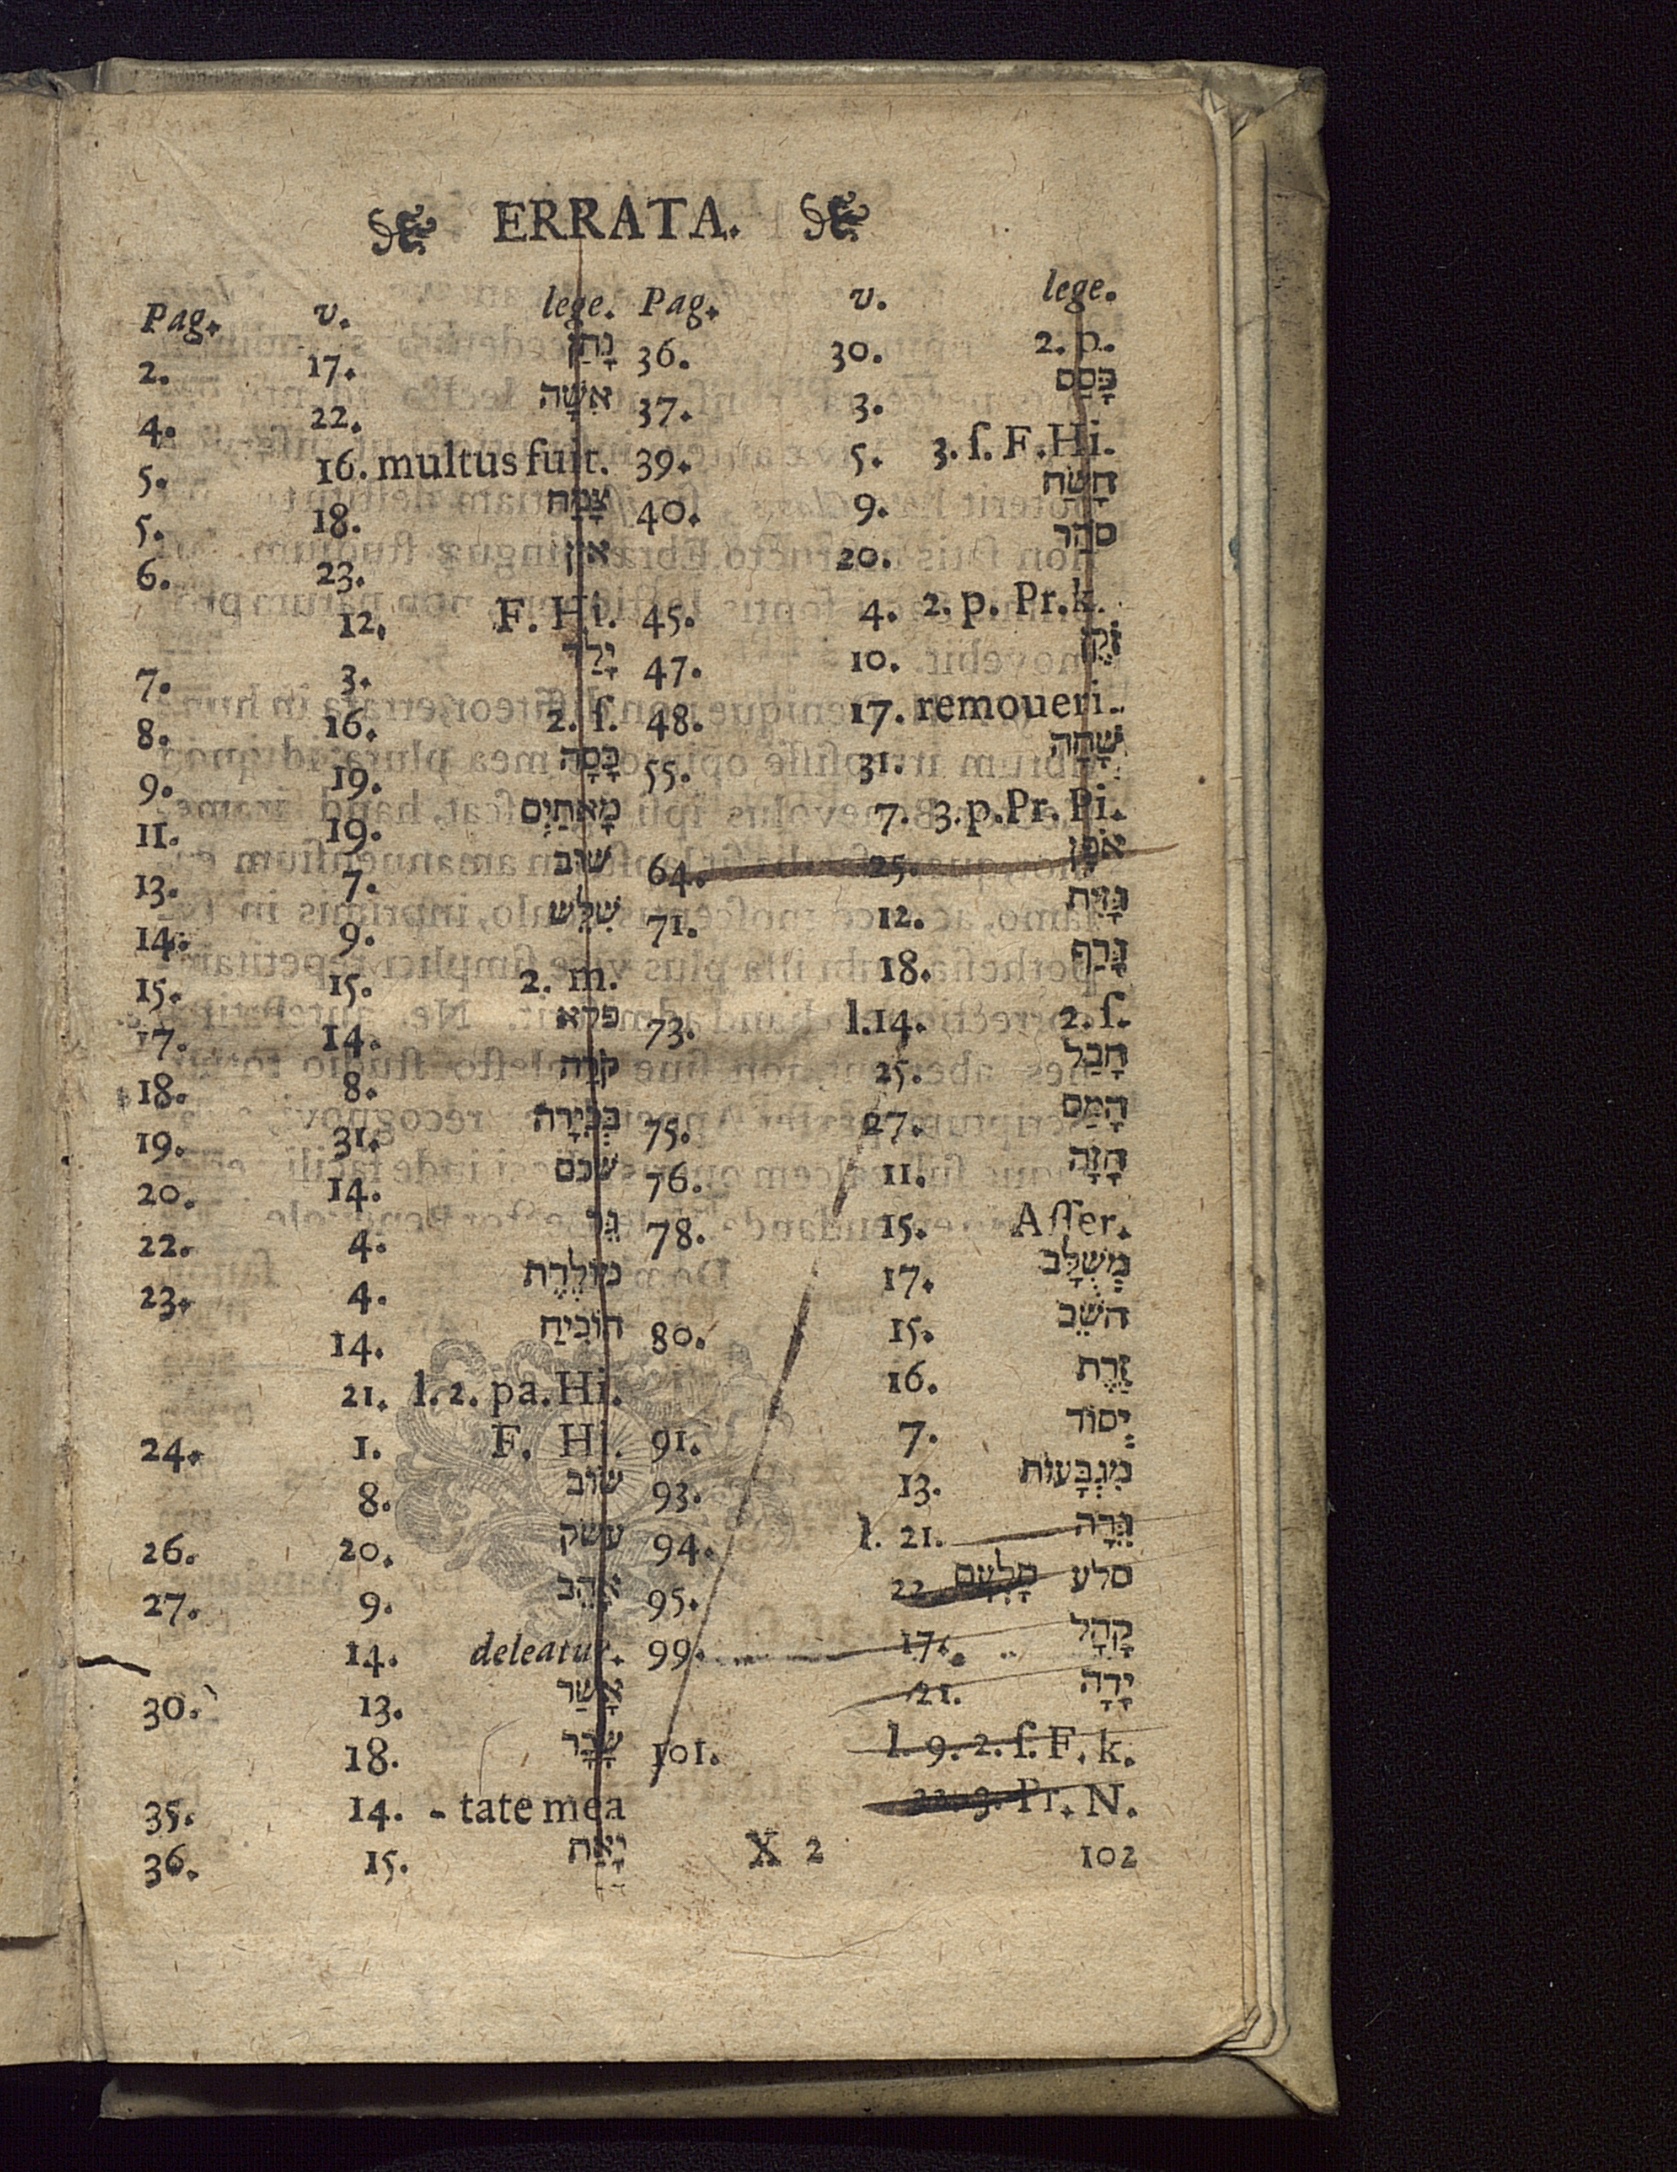 ERRATA.
Pag. v. lege.
2. 17. נָתַן
4. 22. אִשָּׁה
5. 16. multus fuit.
5. 18. צָמַח
6. 23. אין
12. F. Hi.
7. 3. יָלַד
8. 16. 2. ſ.
9. 19. כָּסָה
11. 19. מָאתַיִם
13. 7. שׁוּב
14. 9. שִׁלֵּשׁ
15. 15. 2. m.
17. 14.
18. 8. קרה
19. 31. בְּכִירָה
20. 14. שכם
22. 4. גֵּר
23. 4. מוֹלֶדֶת
14. הוֹכִיחַ
21. l. 2. pa. Hi.
24. 1. F. Hi.
8. שׁוֹב
26. 20. עשׁק
27. 9. אָהֵב
14. deleatur.
30. 13. אָשַׁר
18. שָׂכָר
35. 14. - tate mea
36. 15.
Pag. v. lege.
36. 30. 2. p.
37. 3. כָּסַס
39. 5. 3. ſ. F. Hi.
40. 9.
20. סהר
45. 4. 2. p. Pr. k.
47. 10. זָקֵן
48. 17. remoueri.
55. 31. שָׁחָה
7. 3. p. Pr. Pi.
64. 25. אֹפָן
71. 12. גָּזִית
18. גָּרַף
73. l. 14. 2. ſ.
25. חָבַל
75. 27. הָמַם
76. 11. חָזָה
78. 15. Aſſer.
17. מְשֻׁלָּב
80. 15. השֵׁב
16. זֶרֶת
91. 7. יְסוֹד
93. 13. מִגְבָּעוֹת
94. l. 21. גֵּרָה
95. 22. סלע סָלְעָם
99. 17. קָהָל
21. יָרָה
101. l. 9. 2. ſ. F. k.
22. 3. Pr. N.
X 2 102